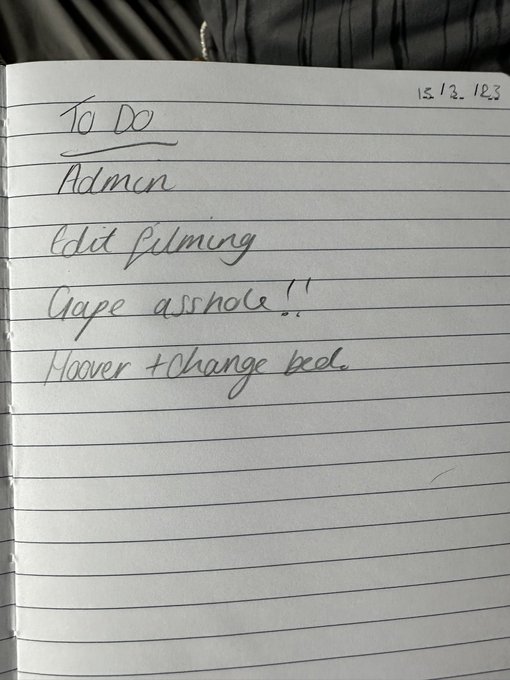 15/3/23
To Do
Admin
Edit filming
Gape asshole!!
Hoover + change bed.